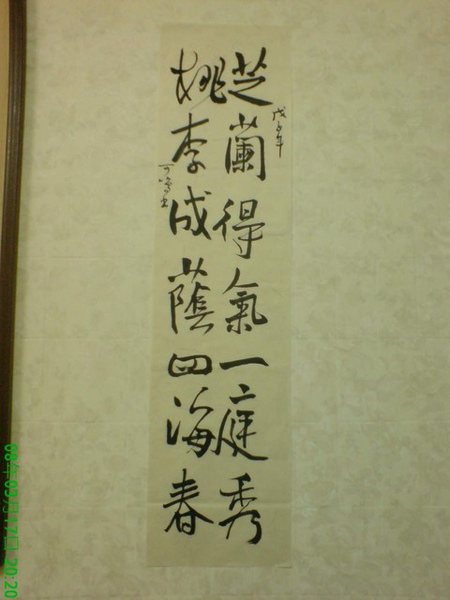 戊子年
芝蘭得氣一庭秀
桃李成蔭四海春
08年03月17日 20:20